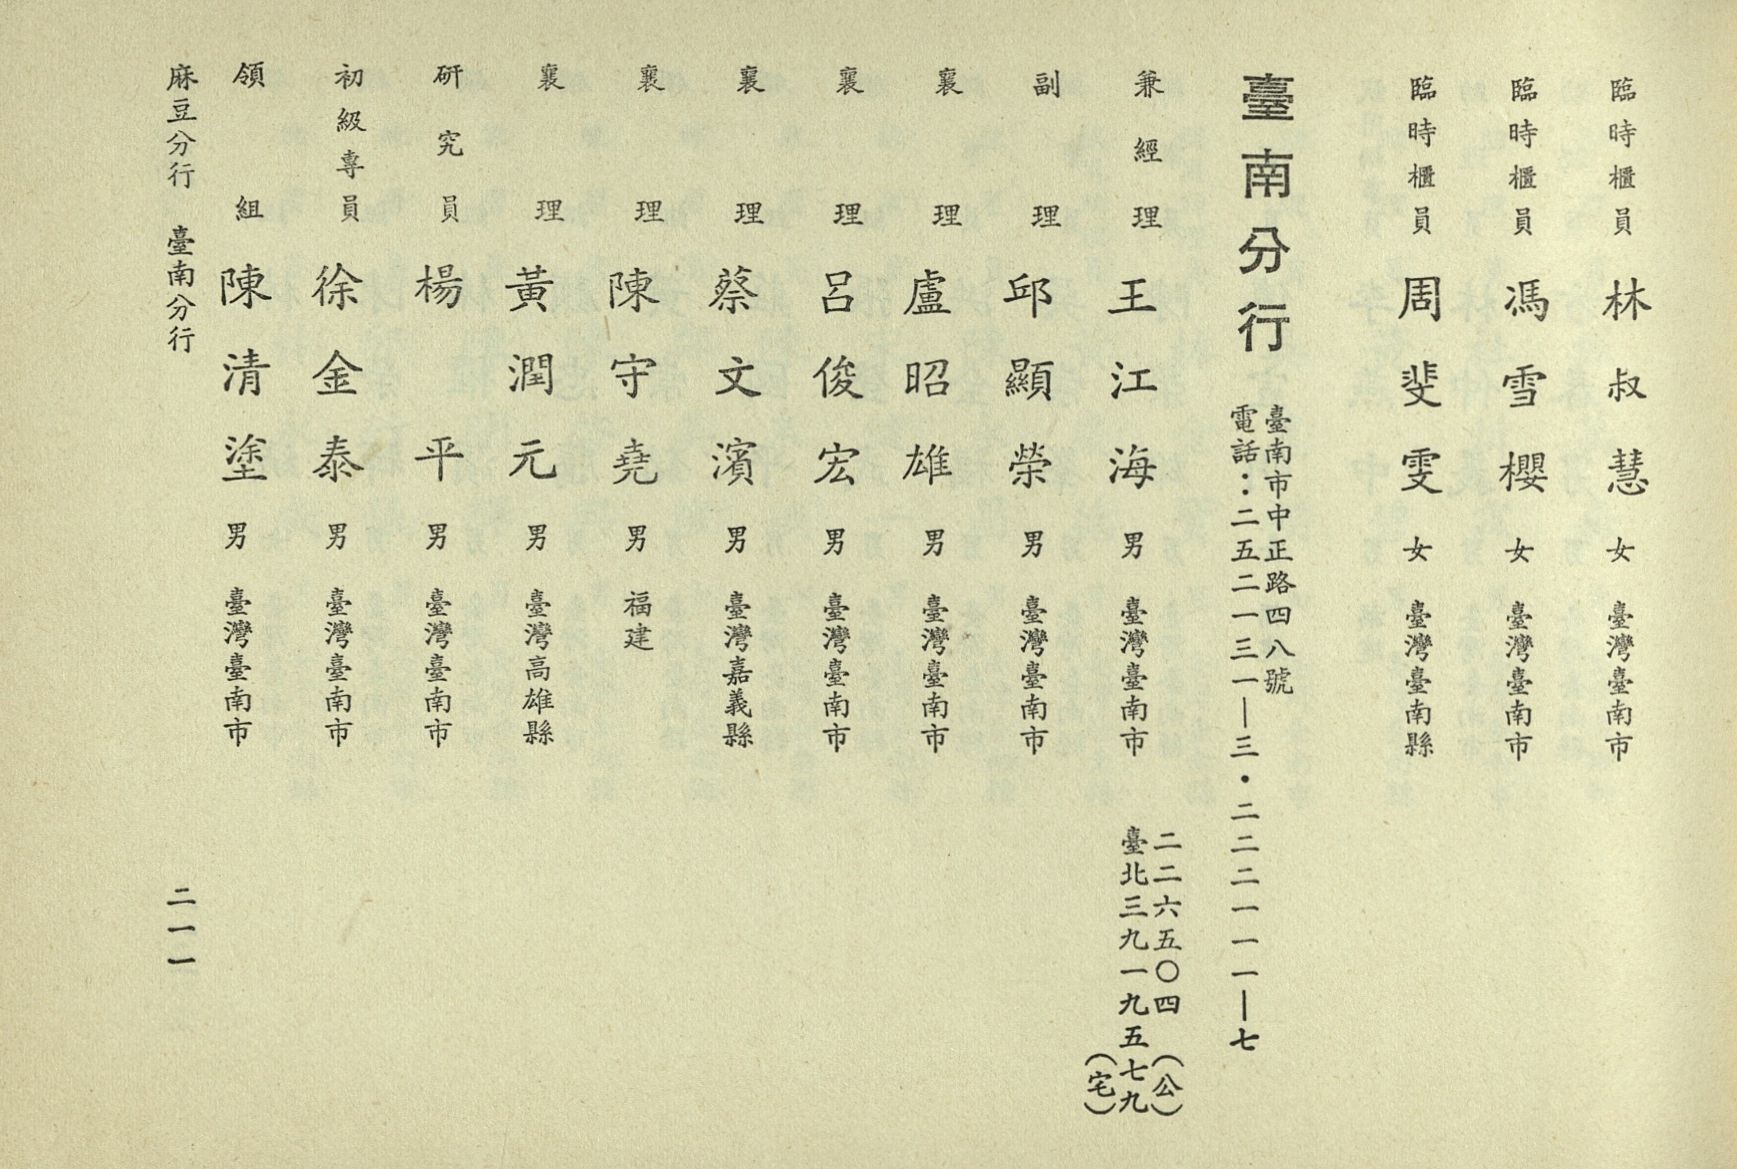 臨時櫃員 林叔慧 女 臺灣臺南市
臨時櫃員 馮雪櫻 女 臺灣臺南市
臨時櫃員 周斐雯 女 臺灣臺南縣
臺南分行
臺南市中正路四八號
電話：二五二一三一—三・二二二一一一—七
兼經理 王江海 男 臺灣臺南市
二二六五〇四（公）
臺北三九一九五七九（宅）
副理 邱顯榮 男 臺灣臺南市
襄理 盧昭雄 男 臺灣臺南市
襄理 呂俊宏 男 臺灣臺南市
襄理 蔡文濱 男 臺灣嘉義縣
襄理 陳守堯 男 福建
襄理 黃潤元 男 臺灣高雄縣
研究員 楊平 男 臺灣臺南市
初級專員 徐金泰 男 臺灣臺南市
領組 陳清塗 男 臺灣臺南市
麻豆分行 臺南分行
二一一